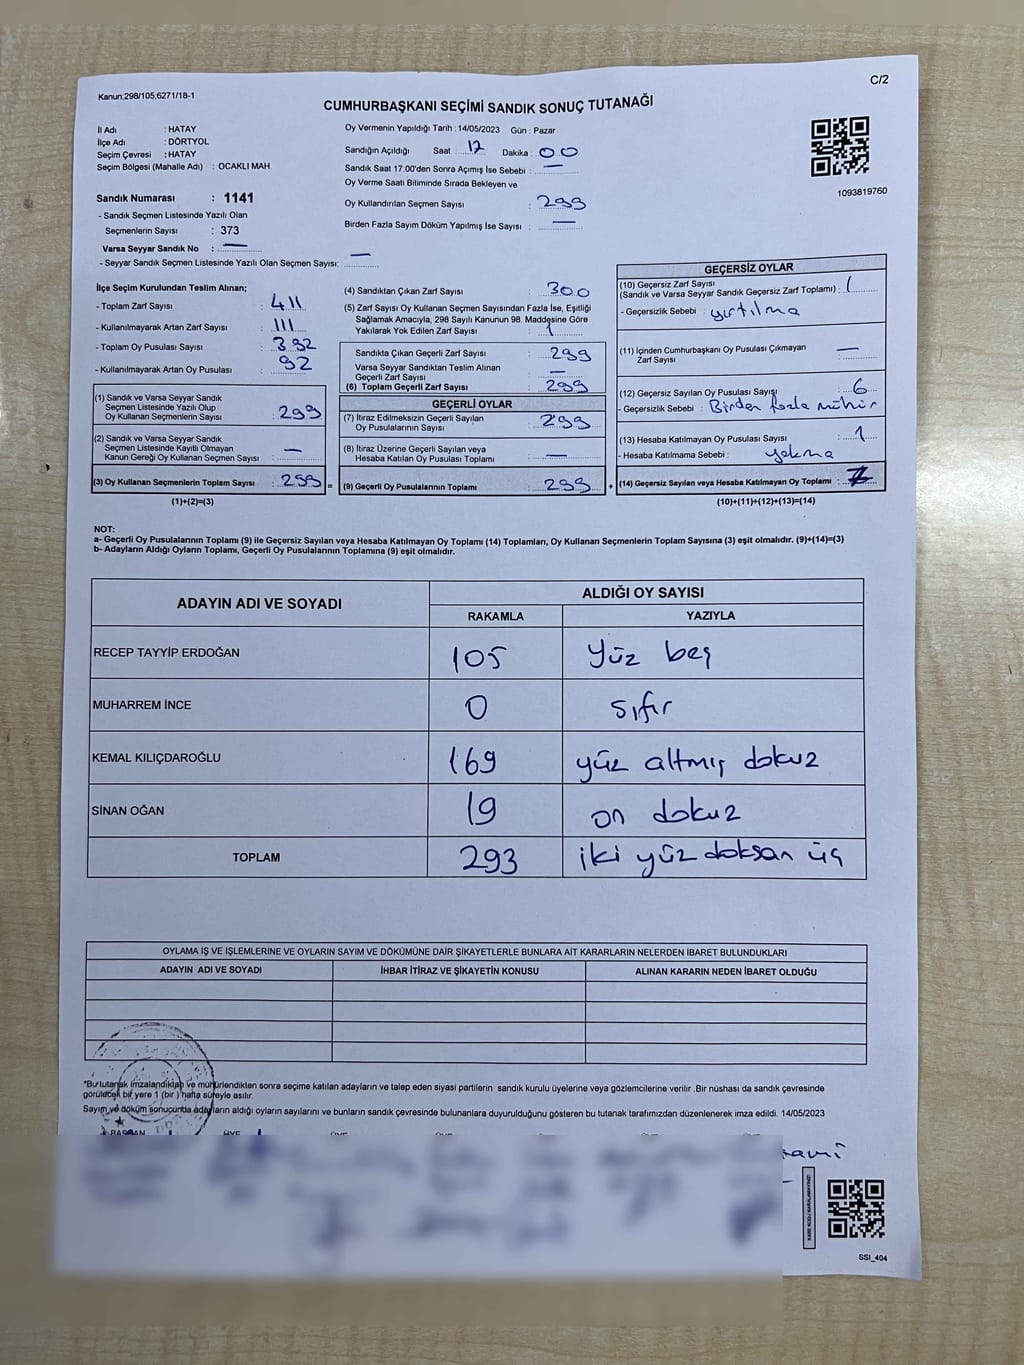 Kanun;298/105,6271/18-1
C/2
CUMHURBAŞKANI SEÇİMİ SANDIK SONUÇ TUTANAĞI
İl Adı : HATAY
İlçe Adı : DÖRTYOL
Seçim Çevresi : HATAY
Seçim Bölgesi (Mahalle Adı) : OCAKLI MAH.
Sandık Numarası : 1141
- Sandık Seçmen Listesinde Yazılı Olan
Seçmenlerin Sayısı : 373
Varsa Seyyar Sandık No : —
- Seyyar Sandık Seçmen Listesinde Yazılı Olan Seçmen Sayısı: —
Oy Vermenin Yapıldığı Tarih : 14/05/2023 Gün : Pazar
Sandığın Açıldığı Saat 17 Dakika 00
Sandık Saat 17:00'den Sonra Açımış İse Sebebi : —
Oy Verme Saati Bitiminde Sırada Bekleyen ve
Oy Kullandırılan Seçmen Sayısı : 299
Birden Fazla Sayım Döküm Yapılmış İse Sayısı : —
1093819760
İlçe Seçim Kurulundan Teslim Alınan;
- Toplam Zarf Sayısı : 411
- Kullanılmayarak Artan Zarf Sayısı : 111
- Toplam Oy Pusulası Sayısı : 392
- Kullanılmayarak Artan Oy Pusulası : 92
(1) Sandık ve Varsa Seyyar Sandık
Seçmen Listesinde Yazılı Olup
Oy Kullanan Seçmenlerin Sayısı : 299
(2) Sandık ve Varsa Seyyar Sandık
Seçmen Listesinde Kayıtlı Olmayan
Kanun Gereği Oy Kullanan Seçmen Sayısı : —
(3) Oy Kullanan Seçmenlerin Toplam Sayısı : 299 =
(1)+(2)=(3)
(4) Sandıktan Çıkan Zarf Sayısı : 300
(5) Zarf Sayısı Oy Kullanan Seçmen Sayısından Fazla İse, Eşitliği
Sağlamak Amacıyla, 298 Sayılı Kanunun 98. Maddesine Göre
Yakılarak Yok Edilen Zarf Sayısı : 1
Sandıkta Çıkan Geçerli Zarf Sayısı : 299
Varsa Seyyar Sandıktan Teslim Alınan
Geçerli Zarf Sayısı : —
(6) Toplam Geçerli Zarf Sayısı : 299
GEÇERLİ OYLAR
(7) İtiraz Edilmeksizin Geçerli Sayılan
Oy Pusulalarının Sayısı : 299
(8) İtiraz Üzerine Geçerli Sayılan veya
Hesaba Katılan Oy Pusulası Toplamı : —
(9) Geçerli Oy Pusulalarının Toplamı : 299 +
GEÇERSİZ OYLAR
(10) Geçersiz Zarf Sayısı
(Sandık ve Varsa Seyyar Sandık Geçersiz Zarf Toplamı) : 1
- Geçersizlik Sebebi : yırtılma
(11) İçinden Cumhurbaşkanı Oy Pusulası Çıkmayan
Zarf Sayısı : —
(12) Geçersiz Sayılan Oy Pusulası Sayısı : 6
- Geçersizlik Sebebi : Birden fazla mühür
(13) Hesaba Katılmayan Oy Pusulası Sayısı : 1
- Hesaba Katılmama Sebebi : yakma
(14) Geçersiz Sayılan veya Hesaba Katılmayan Oy Toplamı :
(10)+(11)+(12)+(13)=(14)
NOT:
a- Geçerli Oy Pusulalarının Toplamı (9) ile Geçersiz Sayılan veya Hesaba Katılmayan Oy Toplamı (14) Toplamları, Oy Kullanan Seçmenlerin Toplam Sayısına (3) eşit olmalıdır. (9)+(14)=(3)
b- Adayların Aldığı Oyların Toplamı, Geçerli Oy Pusulalarının Toplamına (9) eşit olmalıdır.
ADAYIN ADI VE SOYADI
ALDIĞI OY SAYISI
RAKAMLA YAZIYLA
RECEP TAYYİP ERDOĞAN 105 Yüz beş
MUHARREM İNCE 0 sıfır
KEMAL KILIÇDAROĞLU 169 yüz altmış dokuz
SİNAN OĞAN 19 on dokuz
TOPLAM 293 iki yüz doksan üç
OYLAMA İŞ VE İŞLEMLERİNE VE OYLARIN SAYIM VE DÖKÜMÜNE DAİR ŞİKAYETLERLE BUNLARA AİT KARARLARIN NELERDEN İBARET BULUNDUKLARI
ADAYIN ADI VE SOYADI İHBAR İTİRAZ VE ŞİKAYETİN KONUSU ALINAN KARARIN NEDEN İBARET OLDUĞU
*Bu tutanak imzalandıktan ve mühürlendikten sonra seçime katılan adayların ve talep eden siyasi partilerin sandık kurulu üyelerine veya gözlemcilerine verilir .Bir nüshası da sandık çevresinde
görülecek bir yere 1 (bir ) hafta süreyle asılır.
Sayım ve döküm sonucunda adayların aldığı oyların sayılarını ve bunların sandık çevresinde bulunanlara duyurulduğunu gösteren bu tutanak tarafımızdan düzenlenerek imza edildi. 14/05/2023
SSI_404